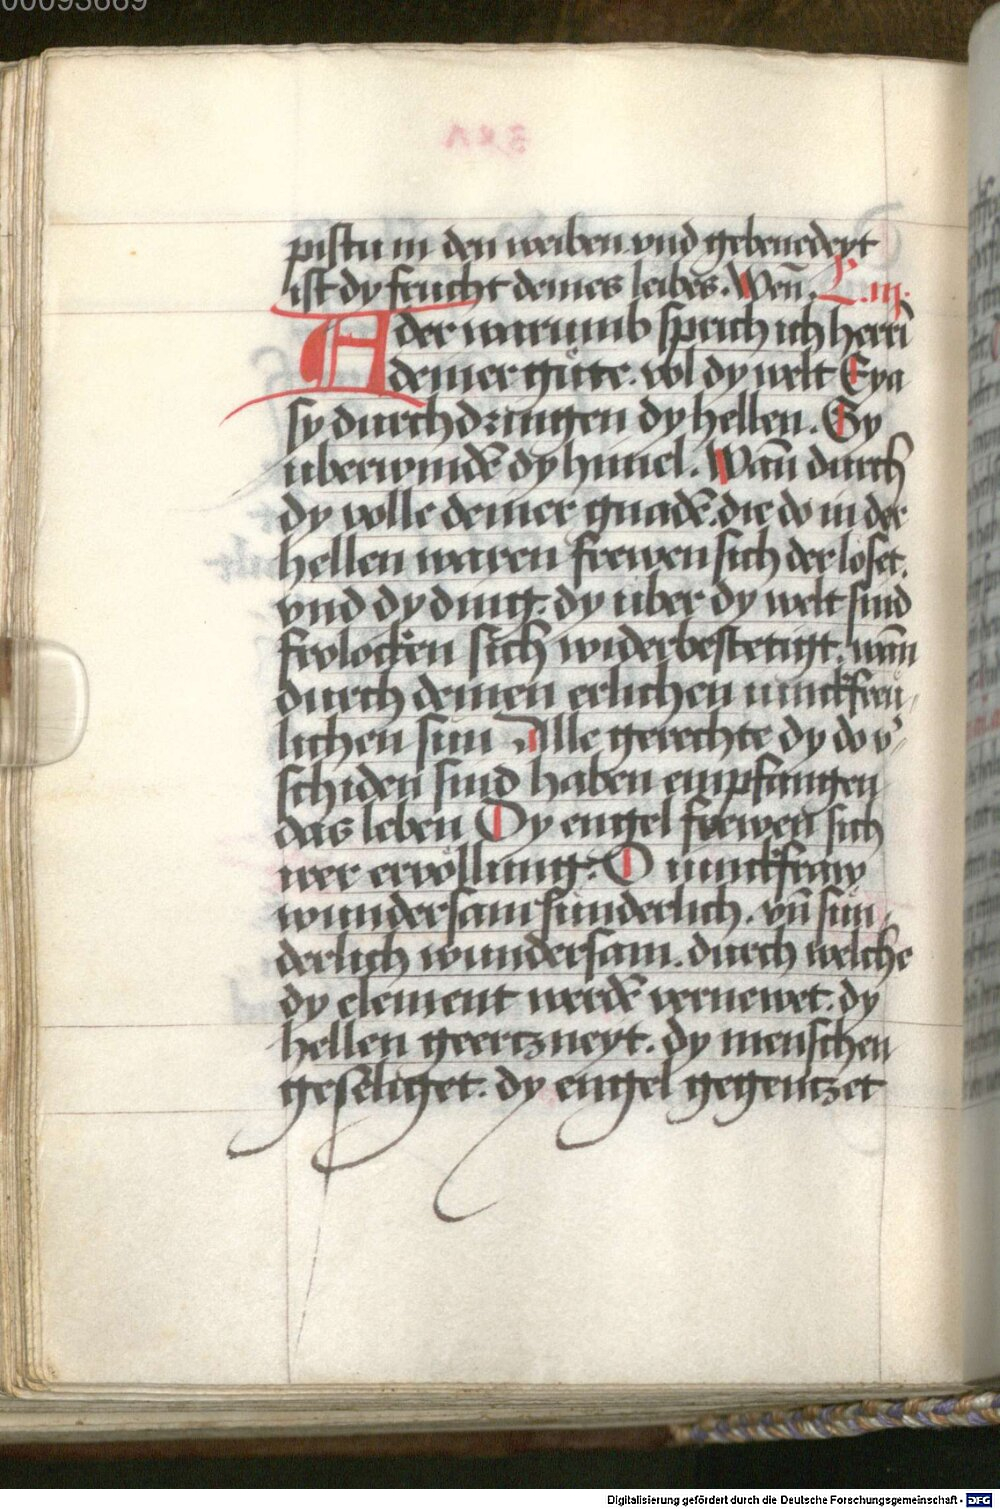 00093669
pistu in den weiben. vnd gebenedeyt
ist dy frucht deines leibes. Wen̄. L. iij.
Ader warumb sprich ich herri
deiner gu̇te. vol dy welt Eya
sy durchdringen dy hellen. Sy
uberwindē dy himel. Wan̄ durch
dy volle deiner gnadē. die do in der
hellen waren frewen sich der loset.
vnd dy ding. dy uber dy welt sind
frolocken sich widerbestetigt. wan̄
durch deinen erlichen iunckfreu̇
lichen sun Alle gerechte dy do v̄
schiden sind haben empfangen
das leben Dy engel frewen sich
irer ervo̊llung. O iunckfraw
wundersam su̇nderlich. vn̄ su̇n
derlich wundersam. durch welche
dy element werdē vernewet. dy
hellen geertzneyt. dy menschen
geseliget. dy engel gegentzet
Digitalisierung gefördert durch die Deutsche Forschungsgemeinschaft - DFG